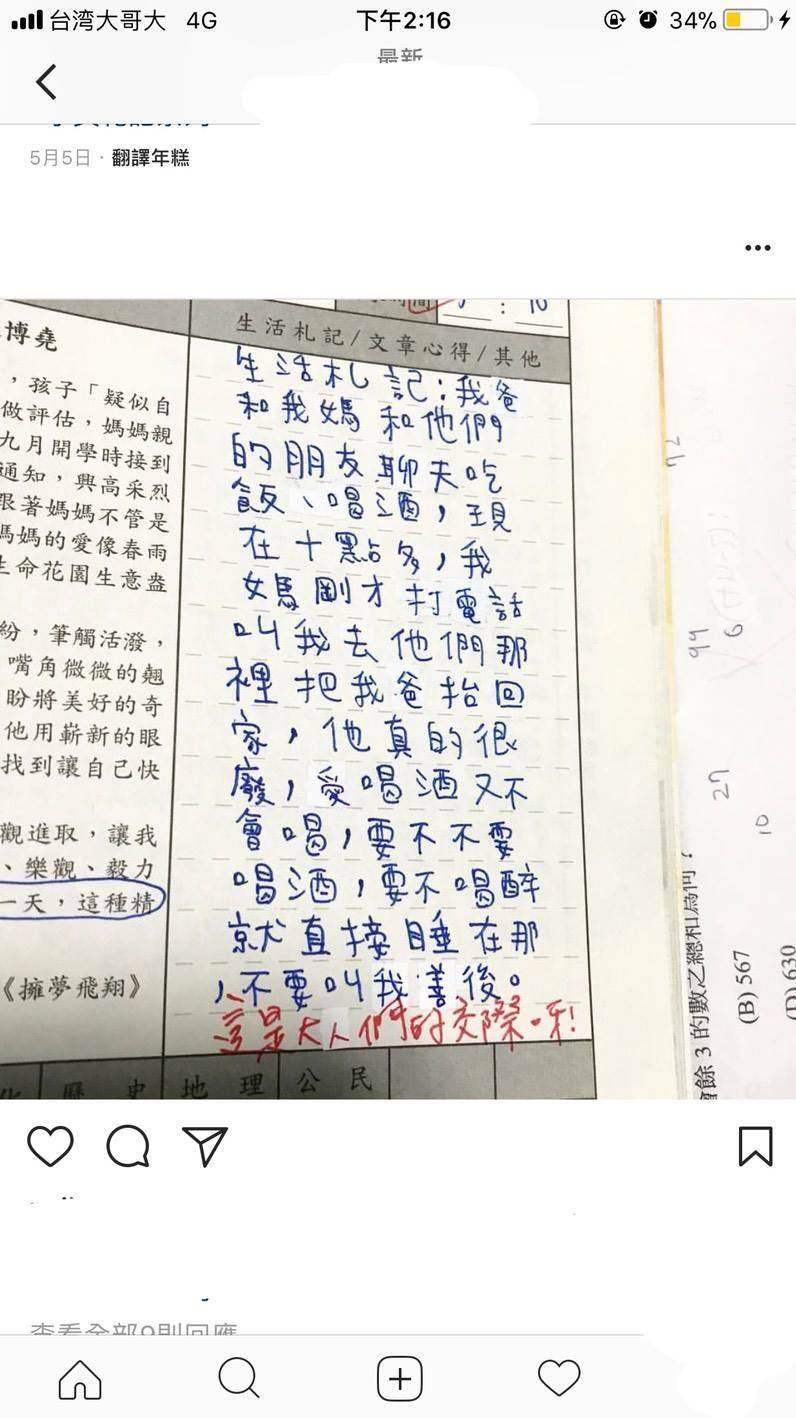 台湾大哥大 4G 下午2:16 34%
最新
5月5日 · 翻譯年糕
博堯
，孩子「疑似自
做評估，媽媽親
九月開學時接到
通知，興高采烈
跟著媽媽不管是
媽媽的愛像春雨
生命花園生意盎
紛，筆觸活潑，
嘴角微微的翹
盼將美好的奇
他用嶄新的眼
找到讓自己快
觀進取，讓我
、樂觀、毅力
一天，這種精
《擁夢飛翔》
: 10
生活札記/文章心得/其他
生活札記：我爸
和我媽和他們
的朋友聊天吃
飯、喝酒，現
在十點多，我
媽剛才打電話
叫我去他們那
裡把我爸抬回
家，他真的很
廢，愛喝酒又不
會喝，要不不要
喝酒，要不喝醉
就直接睡在那
，不要叫我善後。
這是大人們的交際呀!
歷史 地理 公民
99
6
27
10
餘 3 的數之總和為何？
(B) 567
(D) 630
查看全部9則回應